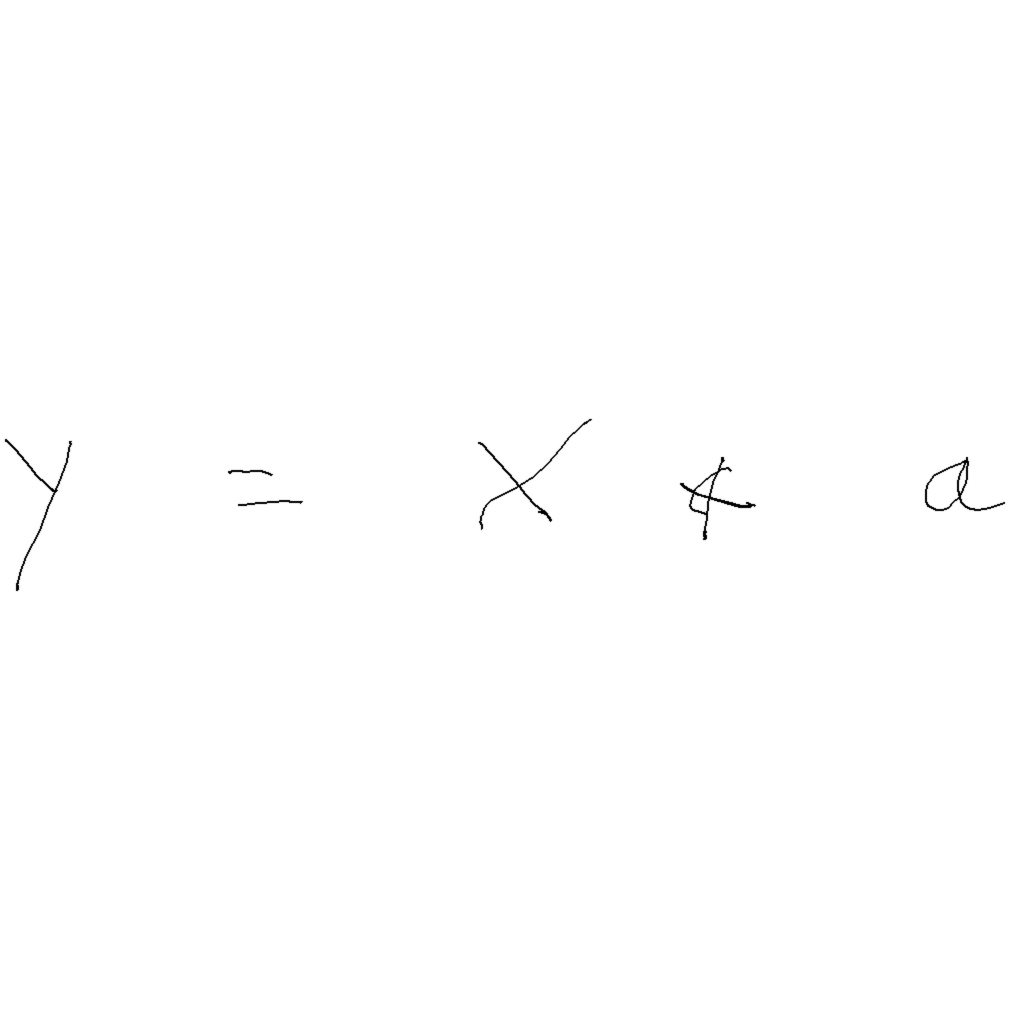 y = x + a